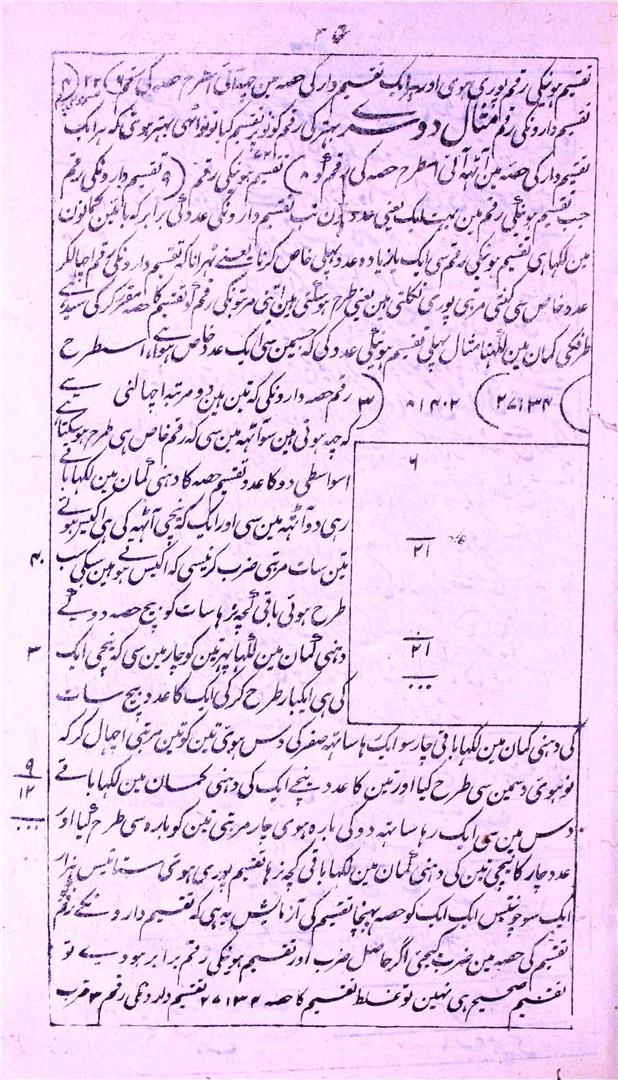 ۳۶
تقسیم ہونیکی رقم پوری ہوی اور ہر ایک تقسیم دار کی حصہ مین چہہ آئی اسطرح حصہ کی رقم ۶) ۲۴ (۴
تقسیم دارونکی رقم مثال دوسرے بہتر کی رقم کو نو پر تقسیم کیا نو نواٹھی بہتر ہوتی کہ ہر ایک
تقسیم دار کی حصہ مین آٹہہ آئی اسطرح حصہ کی رقم ۸) ۷۲ تقسیم ہونیکی رقم (۹ تقسیم دارونکی رقم
جب تقسیم ہونیکی رقم مین بہت انک یعنی عدد ہون تب تقسیم دارونکی عدد کی برابر کہ بائین کمانون
مین لکہا ہی تقسیم ہونیکی رقم سی ایک یا زیادہ عدد پہلی خاص کرنا یعنے ٹہرانا کہ تقسیم دارونکی رقم اچہالکر
عدد خاص سی کتنی مرتبی پوری نکلتی ہین یعنی طرح ہوسکتی ہین اتنی مرتبونکی رقم کو تقسیم کا حصہ مقرر کرکی سیدہے
طرفکی کمان مین لکہنا مثال پہلی تقسیم ہونیکی عدد کی کہ جسمین سی ایک عدد خاص ہوا ہے، اسطرح
) ۲۷۱۳۴ ( ۸۱۴۰۲ ( ۳ رقم حصہ دارونکی کہ تین ہین دو مرتبہ اچہالنی سے
۶
کہ چہہ ہوتی ہین سو آٹہہ مین سی کہ رقم خاص ہی طرح ہوسکتا ہے
اسواسطی دو کا عدد تقسیم حصہ کا دہنی کمان مین لکہا باقی
۲۱
رہی دو آٹہہ مین سی اور ایک کہ نیچی آٹہہ کی ہی اکیس ہوتے
۴۰
تین سات مرتبی ضرب کرنیسی کہ اکیس ہوتے ہین سبکی سب
طرح ہوتی باقی کچہہ نرہا سات کو بیچ حصہ دو کے
۲۱
۰۰۰
۳
دہنی کمان مین لکہا پہر تین کو چار مین سی کہ نیچی ایک
کی ہی ایکبار طرح کرکی ایک کا عدد بیچ سات
کی دہنی کمان مین لکہا باقی چار سو ایک رہا ساتہہ صفر کی دس ہوی تین کو تین مرتبی اچہال کرکہ
۹
۱۲
۰۰۰
نو ہوی دسمین سی طرح کیا اور تین کا عدد نیچے ایک کی دہنی کمان مین لکہا باقے
دس مین سی ایک رہا ساتہہ دو کی بارہ ہوی چار مرتبی تین کو بارہ سی طرح کیا اور
عدد چار کا نیچی تین کی دہنی کمان مین لکہا باقی کچہہ نرہا تقسیم پوری ہوی ستائیس ہزار
ایک سو چونتیس ایک ایک کو حصہ پہنچا تقسیم کی آزمایش یہ ہی کہ تقسیم دارونکے رقم
تقسیم کی حصہ مین ضرب کیجئی اگر حاصل ضرب اور تقسیم ہونکی رقم برابر ہووے تو
تقسیم صحیح ہی نہین تو غلط تقسیم کا حصہ ۲۷۱۳۴ تقسیم دارونکی رقم ۳ ضرب